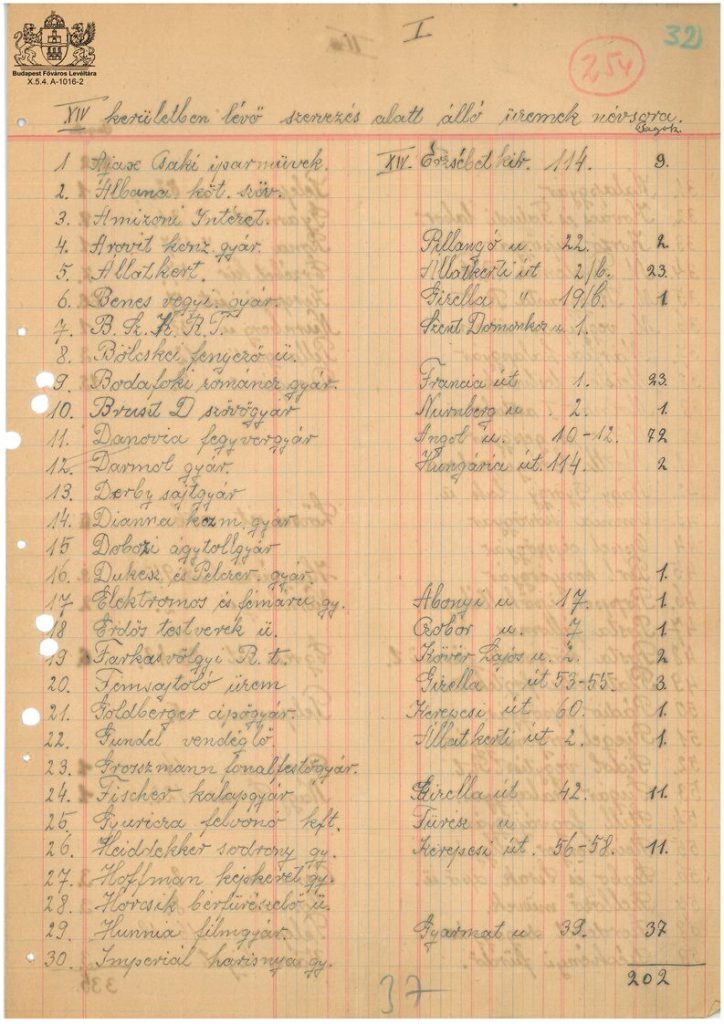 Budapest Főváros Levéltára
X.5.4. A-1016-2
I
254
32
XIV kerületben lévő szervezés alatt álló üzemek névsora.
Tagok.
1 Ajax Csáki iparművek. XIV. Erzsébet kir. 114. 9.
2. Albana köt. szöv.
3. Amizoni Intézet.
4. Arovit konz. gyár. Pillangó u. 22. 2.
5. Állatkert. Állatkerti út 2/b. 23.
6. Bencs vegyi. gyár. Gizella " 19/b. 1
7. B. Sz. K. R. T. Szent Domonkos u 1.
8. Bölcskei fényező ü.
9. Budafoki zománcz gyár. Francia út 1. 23.
10. Brust D szövőgyár Nürnberg u. 2. 1.
11. Danovia fegyvergyár Angol u. 10-12. 72
12. Darmol gyár. Hungária út. 114. 2
13. Derby sajtgyár
14. Dianna kozm. gyár
15 Dobozi ágytollgyár
16. Dukesz és Pelczer. gyár. 1.
17. Elektromos és fémáru gy. Abonyi u 17. 1.
18 Erdős testverek ü. Czobor u. 7 1
19 Farkasvölgyi R. t. Kövér Lajos u. 2. 2
20. Fémsajtoló üzem Gizella út 53-55. 3.
21. Goldberger cipőgyár. Kerepesi út. 60. 1
22. Gundel vendéglő Állatkerti út 2. 1.
23. Groszmann fonalfestőgyár.
24. Fischer kalapgyár Gizella út. 42. 11.
25. felvonó kft. Füresz u
26. Heiddekker sodrony gy. Kerepesi út. 56-58. 11.
27. Hoffman képkeret gy.
28. Horcsik bérfűrészelő ü.
29. Hunnia filmgyár. Gyarmat u 39. 37
30. Imperiál harisnya gy.
202
37